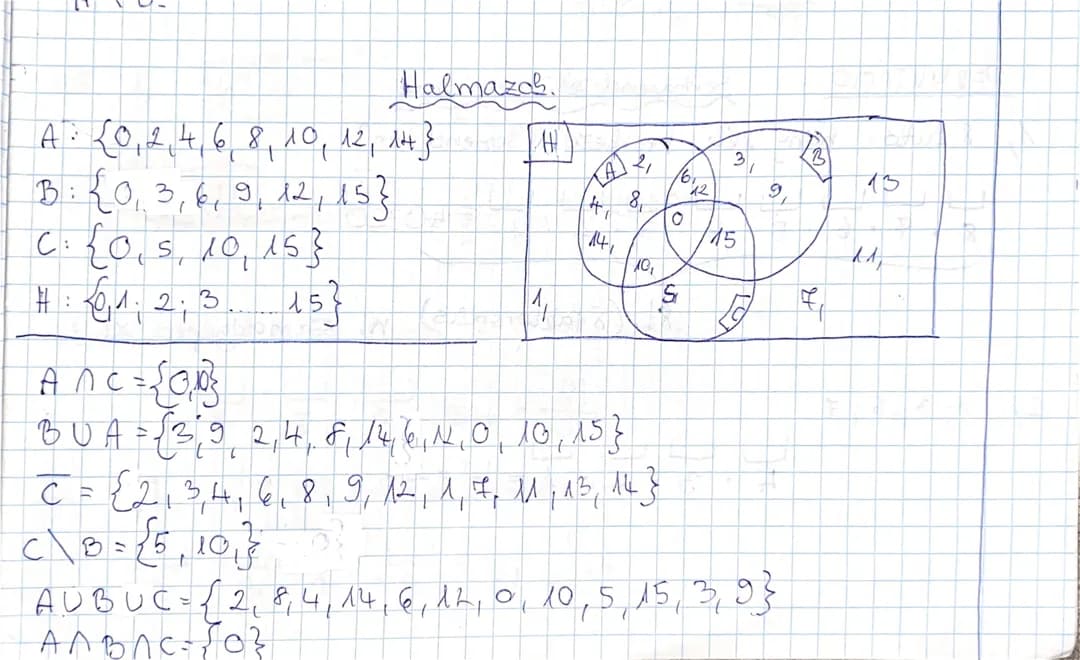 Halmazok.
A: {0, 2, 4, 6, 8, 10, 12, 14}
B: {0, 3, 6, 9, 12, 15}
C: {0, 5, 10, 15}
H: {0, 1; 2; 3...... 15}
H
A 2, 6, 12 3, B 13
4, 8, 0 9,
14, 15 11,
10,
1, 5, C 7,
A ∩ C = {0,10}
B ∪ A = {3, 9, 2, 4, 8, 14, 6, 12, 0, 10, 15}
C̅ = {2, 3, 4, 6, 8, 9, 12, 1, 7, 11, 13, 14}
C \ B = {5, 10,}
A ∪ B ∪ C = {2, 8, 4, 14, 6, 12, 0, 10, 5, 15, 3, 9}
A ∩ B ∩ C = {0}